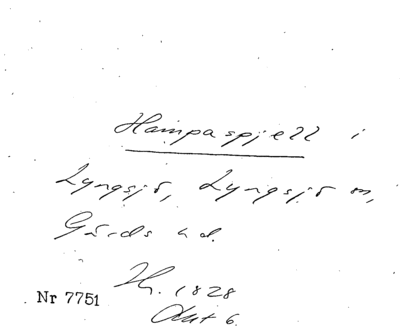 Hampaspjell i
Lyngsjö, Lyngsjö sn,
Gärds hd.
Nr 7751
1828
6